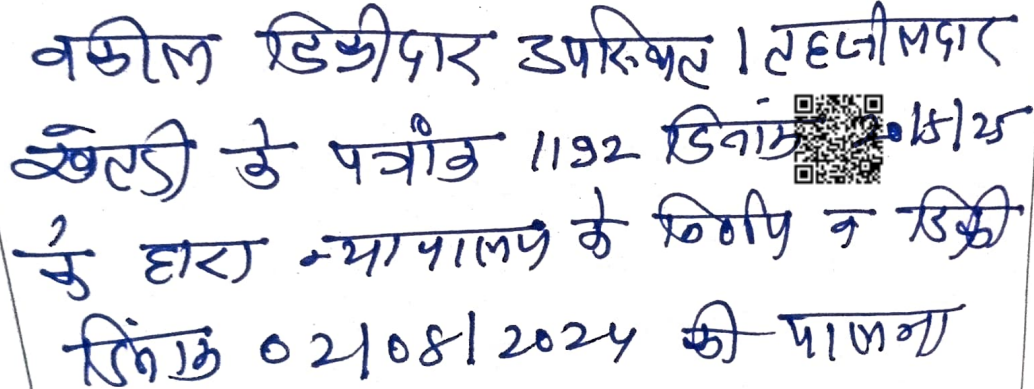 वकील डिक्रीदार उपस्थित । तहसीलदार
खेतडी के पत्रांक 1192 दिनांक 20/5/25
के द्वारा न्यायालय के निर्णय व डिक्री
दिनांक 02/08/2024 की पालना